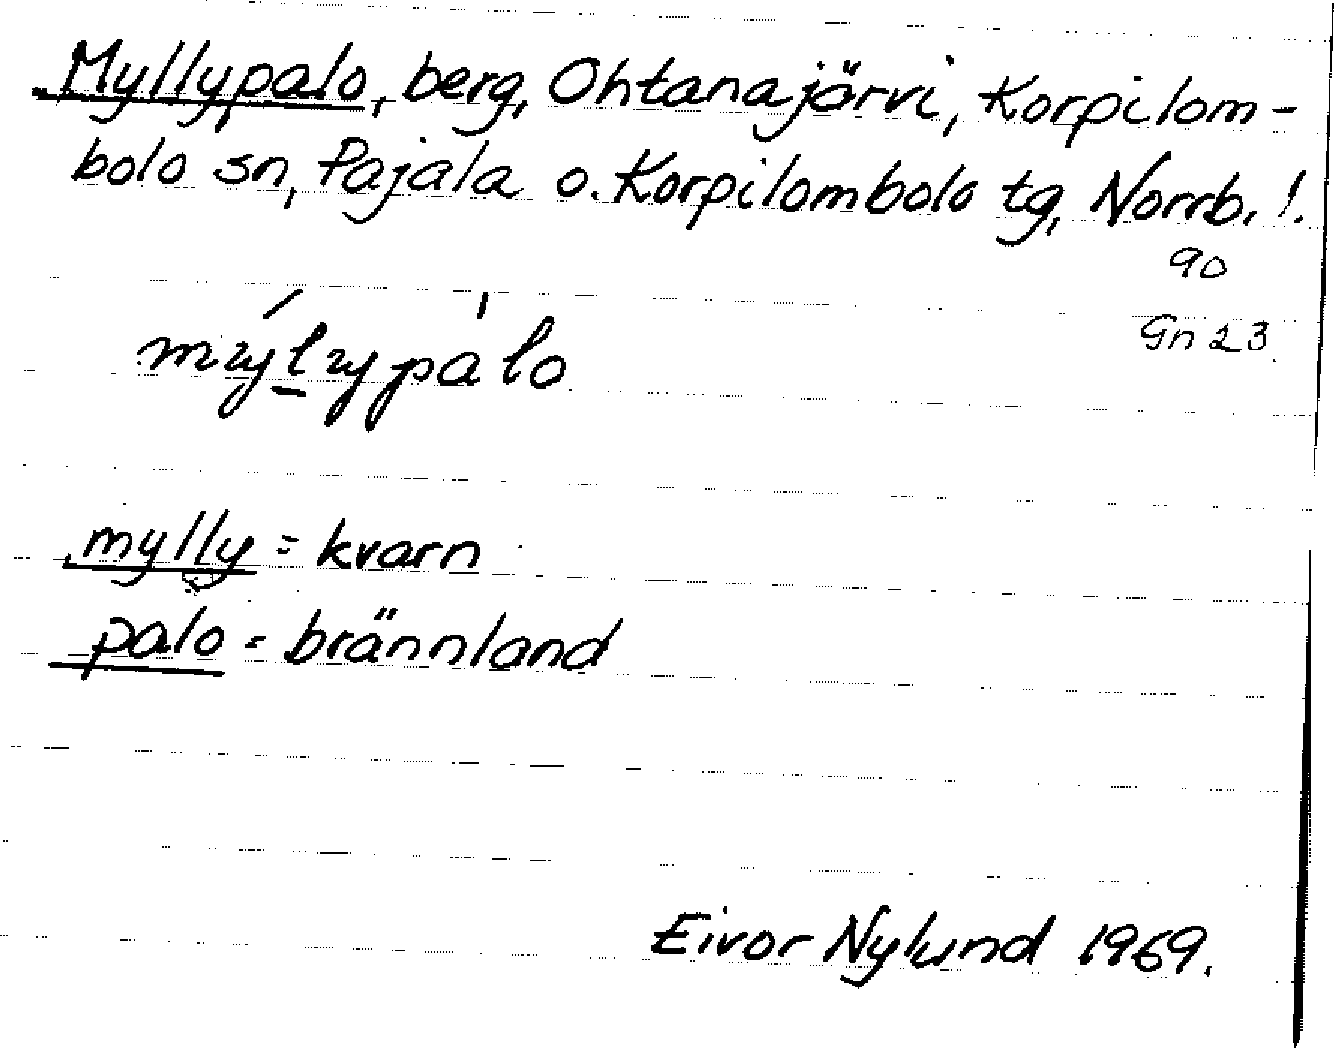 Myllypalo, berg, Ohtanajärvi, Korpilom-
bolo sn, Pajala o. Korpilombolo tg, Norrb. !.
90
Gn 23.
mylly = kvarn
palo = brännland
Eivor Nylund 1969.